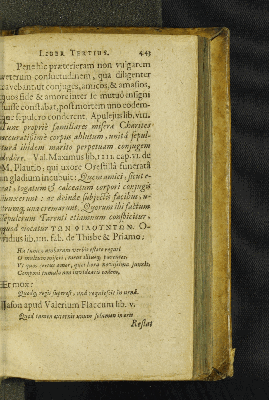 LIBER TERTIUS. 443
Pene hîc præterieram non vulgarem
veterum consuetudinem, qua diligenter
cavebant ut conjuges, amicos, & amasios,
quos fide & amore inter se mutuò insigni
fuisse constabat, post mortem uno eodem-
que sepulcro conderent. Apulejus lib. VIII.
Tum propriè familiares misera Charites
accuratissimè corpus ablutum, unita sepul-
tura ibidem marito perpetuam conjugem
reddidere. Val. Maximus lib. IIII. cap. VI. de
M. Plautio; qui uxore Orestilla funerata
in gladium incubuit: Quem amici, sicut e-
rat, togatum & calceatum corpori conjugis
junxerunt: ac deinde subjectis facibus, u-
trumque una cremarunt. Quorum ibi factum
sepulcrum Tarenti etiamnum conspicitur,
quod vocatur ΤΩΝ ΦΙΛΟΥΝΤΩΝ. O-
vidius lib. IIII. fab. de Thisbe & Priamo;
Ho tamen amborum verbis estote rogati
O multum miseri, meus illiusque parentes
Ut quos certus amor, quos hora novissima junxit,
Componi tumulo non invideatis eodem,
Et mox:
Quodque rogis superest, una requiescit in urna.
Jason apud Valerium Flaccum lib. V.
Quod tamen externis unum solamen in oris
Restat